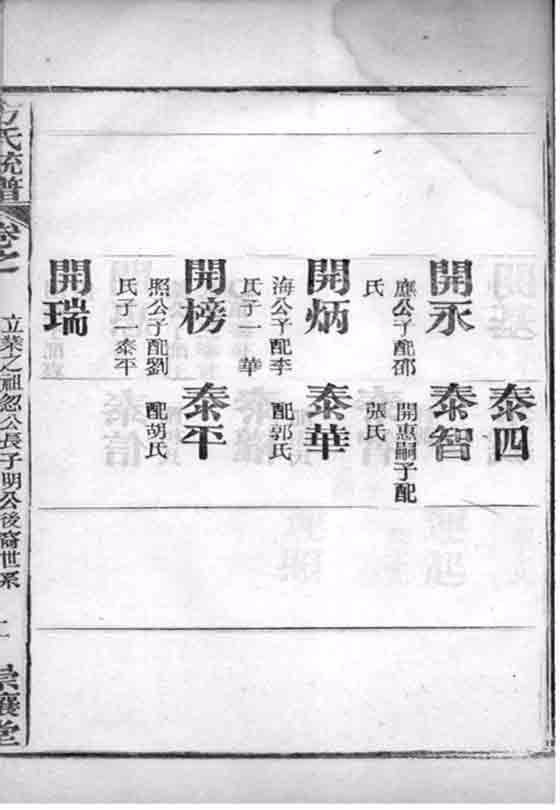 泰四
開永
應公子配邵
氏
泰智
開惠嗣子配
張氏
開炳
海公子配李
氏子一華
泰華
配郭氏
開榜
照公子配劉
氏子一泰平
泰平
配胡氏
開瑞
方氏統譜
卷之
立業之祖忽公長子明公後裔世系
崇讓堂